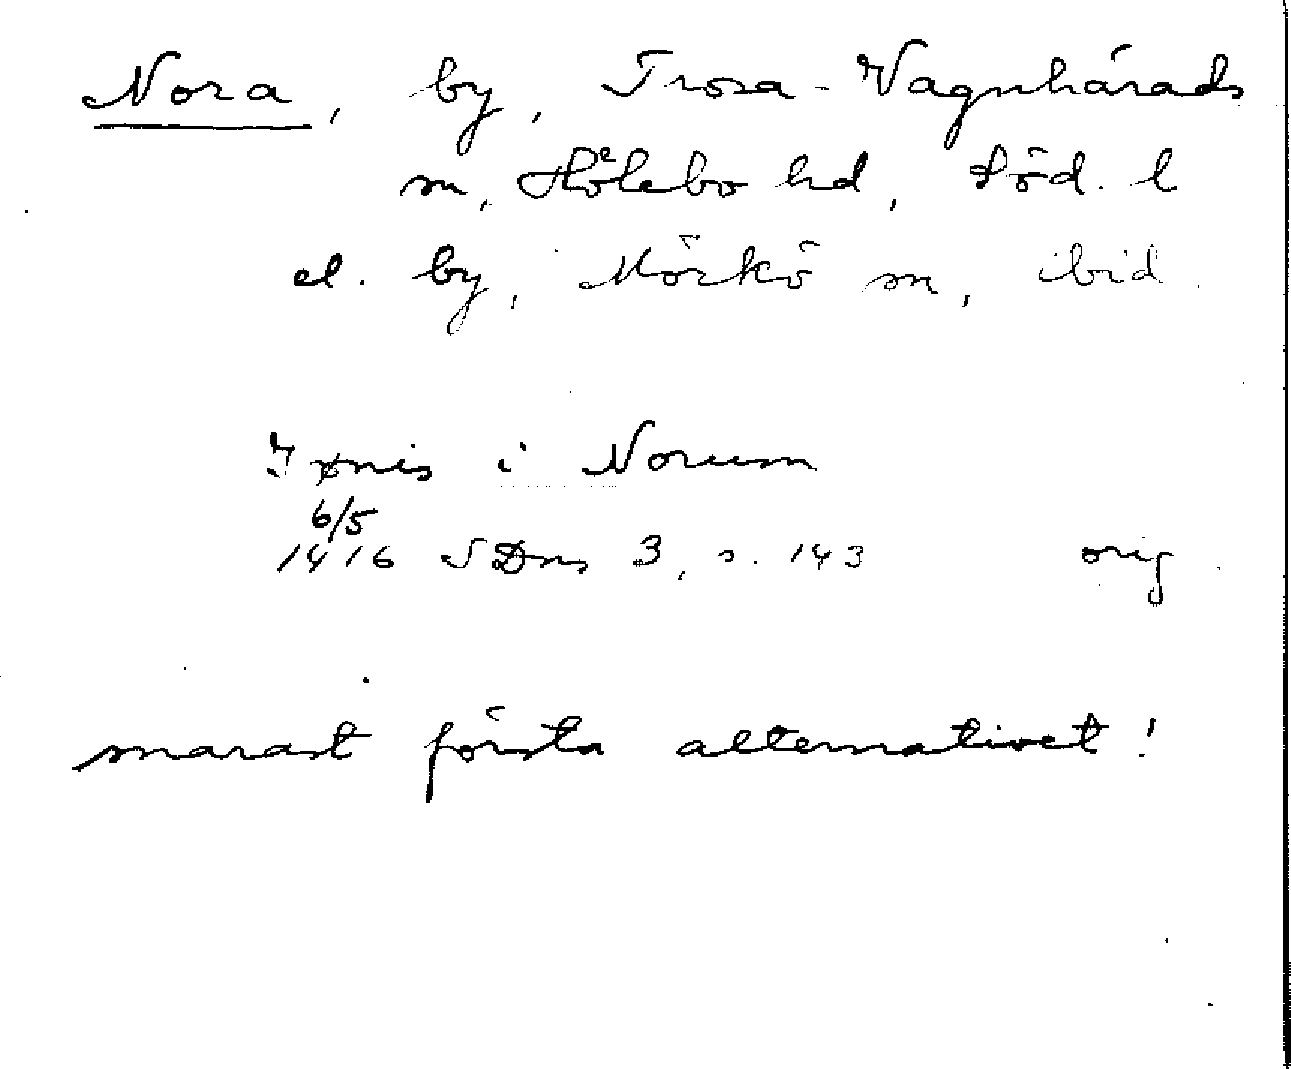 Nora, by, Trosa-Vagnhärads
sn, Hölebo hd, Söd. l
el. by, Mörkö sn, ibid.
i Norum
6/5
1416 SDns 3, s. 143 orig
snarast första alternativet!